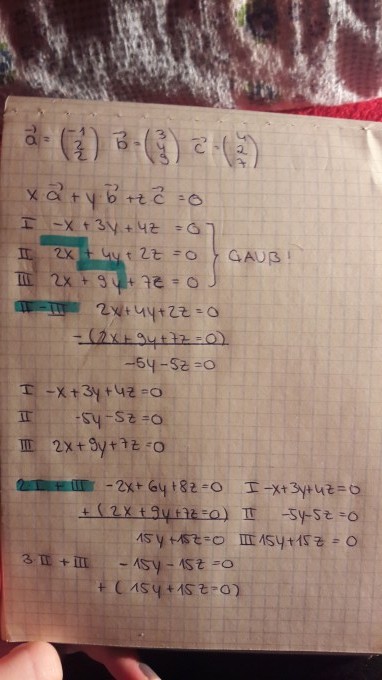 a⃗ = (-1 2 2) b⃗ = (3 4 9) c⃗ = (4 2 7)
x a⃗ + y b⃗ + z c⃗ = 0
I -x + 3y + 4z = 0
II 2x + 4y + 2z = 0 GAUß!
III 2x + 9y + 7z = 0
II - III 2x + 4y + 2z = 0
- (2x + 9y + 7z = 0)
-5y - 5z = 0
I -x + 3y + 4z = 0
II -5y - 5z = 0
III 2x + 9y + 7z = 0
2I + III -2x + 6y + 8z = 0 I -x + 3y + 4z = 0
+ (2x + 9y + 7z = 0) II -5y - 5z = 0
15y + 15z = 0 III 15y + 15z = 0
3 II + III -15y - 15z = 0
+ (15y + 15z = 0)